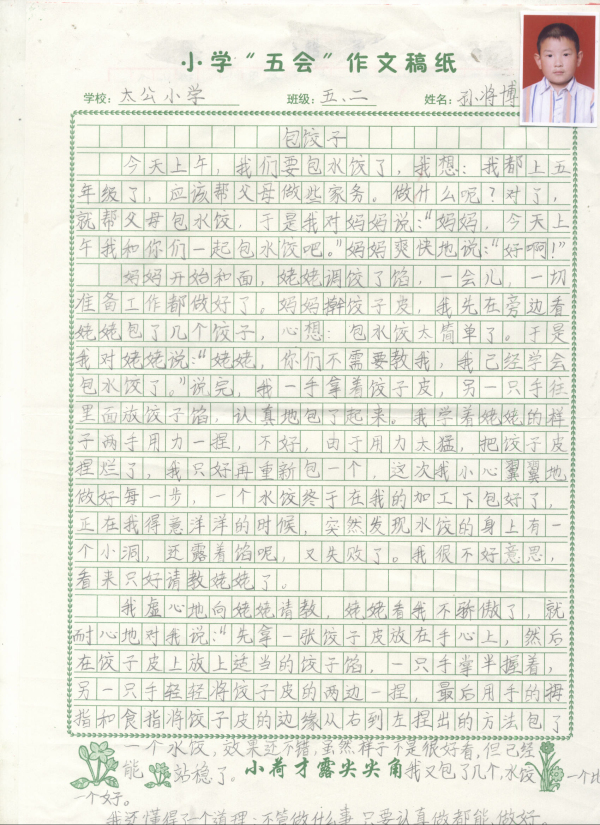 小学“五会”作文稿纸
学校:太公小学 班级:五、二 姓名:孙将博
包饺子
今天上午,我们要包水饺了,我想:我都上五
年级了,应该帮父母做些家务。做什么呢?对了,
就帮父母包水饺,于是我对妈妈说:“妈妈,今天上
午我和你们一起包水饺吧。”妈妈爽快地说:“好啊!”
妈妈开始和面,姥姥调饺了馅,一会儿,一切
准备工作都做好了。妈妈擀饺子皮,我先在旁边看
姥姥包了几个饺子,心想:包水饺太简单了。于是
我对姥姥说:“姥姥,你们不需要教我,我已经学会
包水饺了。”说完,我一手拿着饺子皮,另一只手往
里面放饺子馅,认真地包了起来。我学着姥姥的样
子两手用力一捏,不好,由于用力太猛,把饺子皮
捏烂了,我只好再重新包一个,这次我小心翼翼地
做好每一步,一个水饺终于在我的加工下包好了,
正在我得意洋洋的时候,突然发现水饺的身上有一
个小洞,还露着馅呢,又失败了。我很不好意思,
看来只好请教姥姥了。
我虚心地向姥姥请教,姥姥看我不骄傲了,就
耐心地对我说:“先拿一张饺子皮放在手心上,然后
在饺子皮上放上适当的饺子馅,一只手掌半握着,
另一只手轻轻将饺子皮的两边一捏,最后用手的拇
指和食指将饺子皮的边缘从右到左捏出的方法包了
一个水饺,效果还不错,虽然样子不是很好看,但已经
能站稳了。小荷才露尖尖角我又包了几个,水饺一个比
一个好。
我还懂得了一个道理:不管做什么事,只要认真做都能做好。